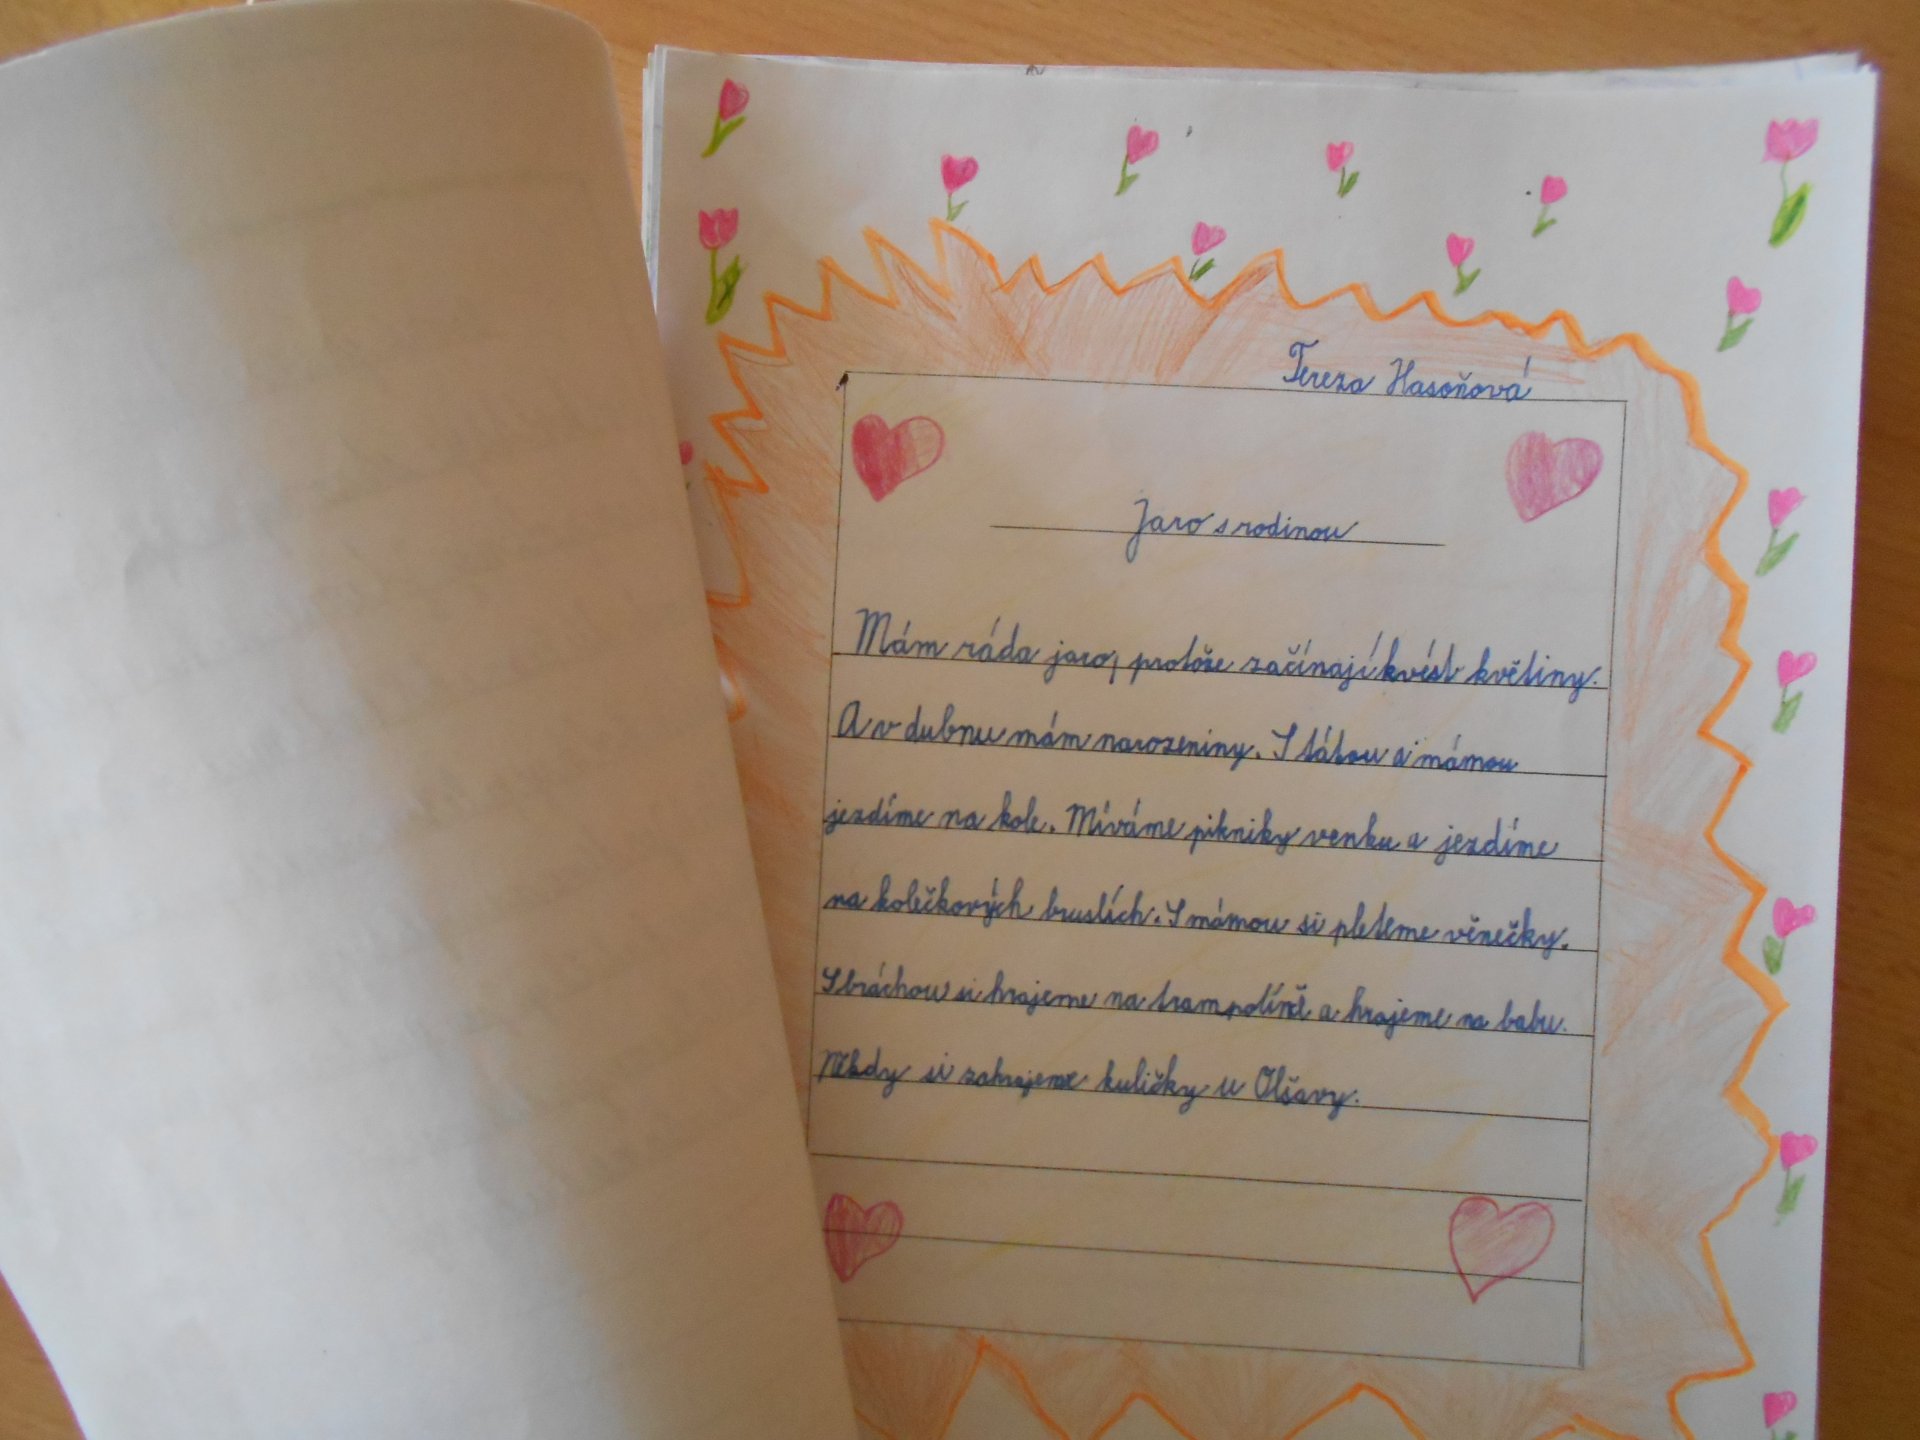 Tereza Hasoňová
Jaro s rodinou
Mám ráda jaro, protože začínají kvést květiny.
A v dubnu mám narozeniny. S tátou a mámou
jezdíme na kole. Míváme pikniky venku a jezdíme
na kolečkových bruslích. S mámou si pleteme věnečky.
S bráchou si hrajeme na trampolíně a hrajeme na babu.
Někdy si zahrajeme kuličky u Olšavy.